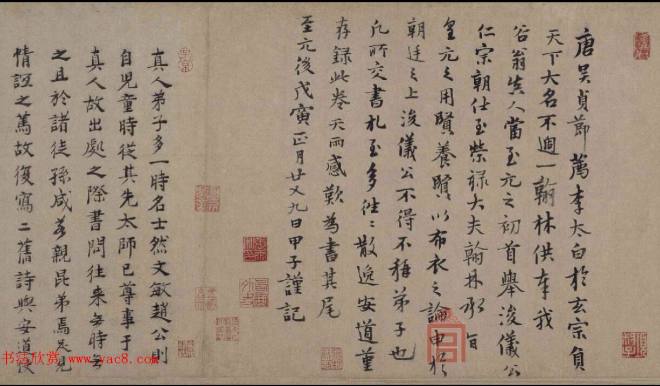 唐吴貞節薦李太白於玄宗負
天下大名不過一翰林供奉我
谷翁真人當至元之初首舉浚儀公
仁宗朝仕至榮禄大夫翰林承旨
皇元之用賢養賢以布衣之論申於
朝廷之上浚儀公不得不稱弟子也
凡所交書札至多往々散逸安道董
存録此卷天雨感歎為書其尾
至元後戊寅正月廿又九日甲子謹記
真人弟子多一時名士然文敏趙公則
自兒童時從其先太師已尊事于
真人故出處之際書問往來無時無
之且於諸徒孫咸若親昆弟焉足見
情誼之篤故復寫二舊詩與安道
书法欣赏 www.yac8.com